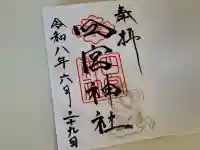 奉拝
四宮神社
令和八年六月二十九日